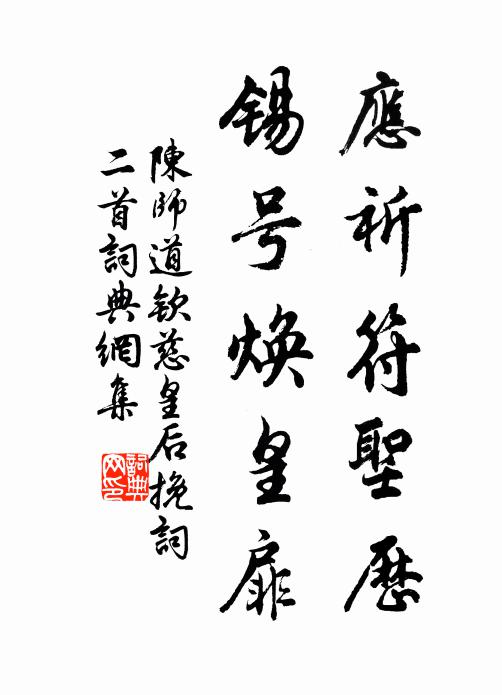 應祈符聖歷
錫号煥皇扉
陳師道欽慈皇后挽詞
二首詞典網集
詞典
网印